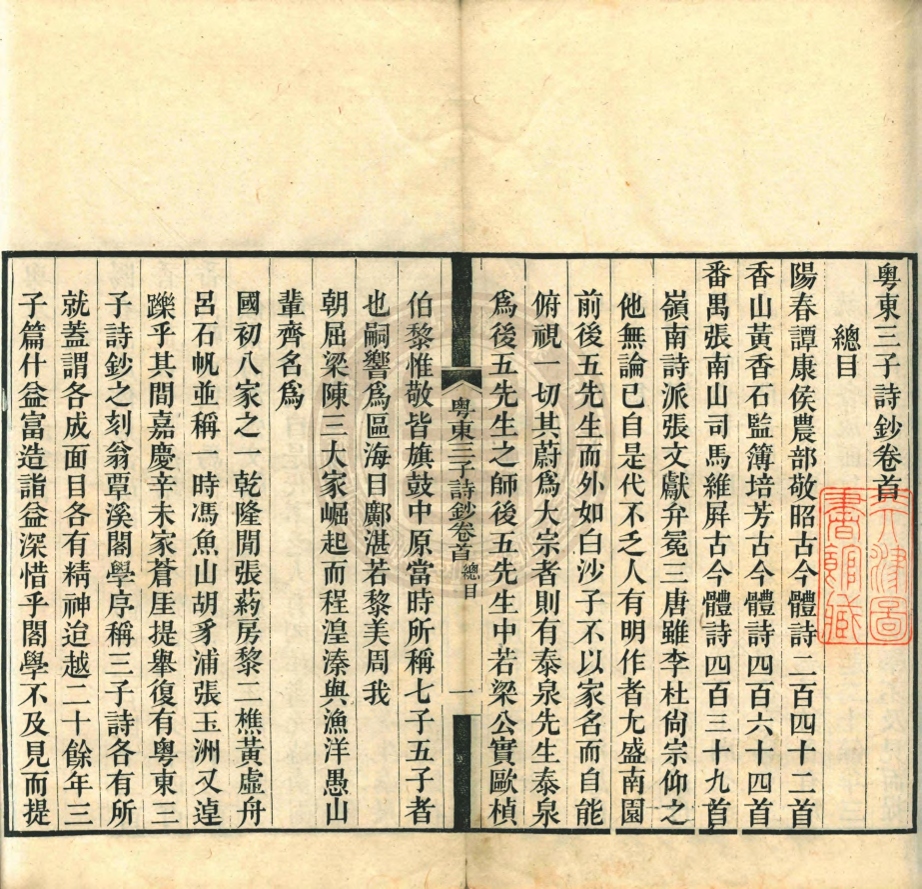 粵東三子詩鈔卷首
總目
陽春譚康侯農部敬昭古今體詩二百四十二首
香山黃香石監簿培芳古今體詩四百六十四首
番禺張南山司馬維屏古今體詩四百三十九首
嶺南詩派張文獻弁冕三唐雖李杜尙宗仰之
他無論已自是代不乏人有明作者尤盛南園
前後五先生而外如白沙子不以家名而自能
俯視一切其蔚爲大宗者則有泰泉先生泰泉
爲後五先生之師後五先生中若梁公實歐楨
粵東三子詩鈔卷首 總目 一
伯黎惟敬皆旗鼓中原當時所稱七子五子者
也嗣響爲區海目鄺湛若黎美周我
朝屈梁陳三大家崛起而程湟溱與漁洋愚山
輩齊名爲
國初八家之一乾隆閒張葯房黎二樵黃虛舟
呂石帆並稱一時馮魚山胡豸浦張玉洲又逴
躒乎其間嘉慶辛未家蒼厓提舉復有粵東三
子詩鈔之刻翁覃溪閣學序稱三子詩各有所
就蓋謂各成面目各有精神迨越二十餘年三
子篇什益富造詣益深惜乎閣學不及見而提
天津圖
書館藏